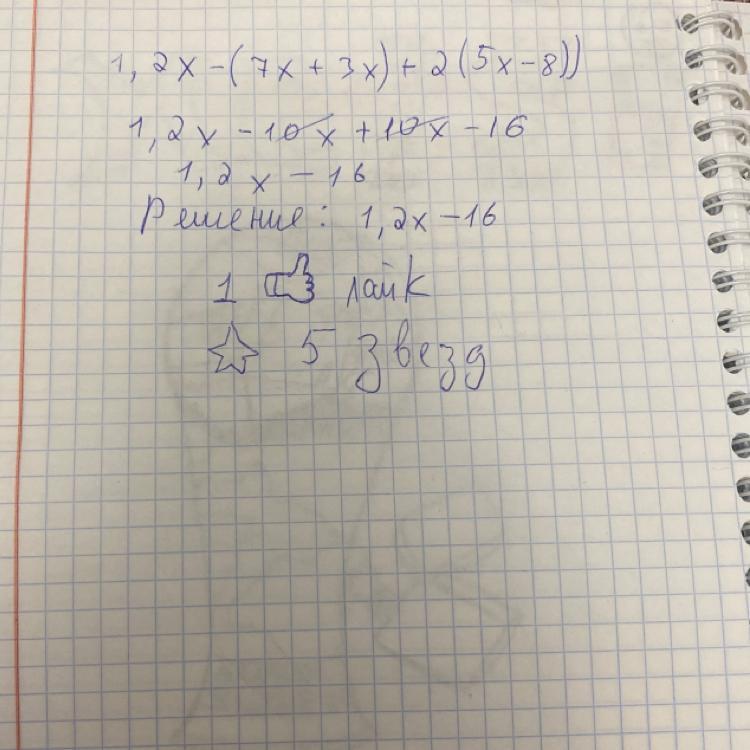 1,2x-(7x+3x)+2(5x-8))
1,2x-10x+10x-16
1,2x-16
Решение: 1,2x-16
1 лайк
5 звезд